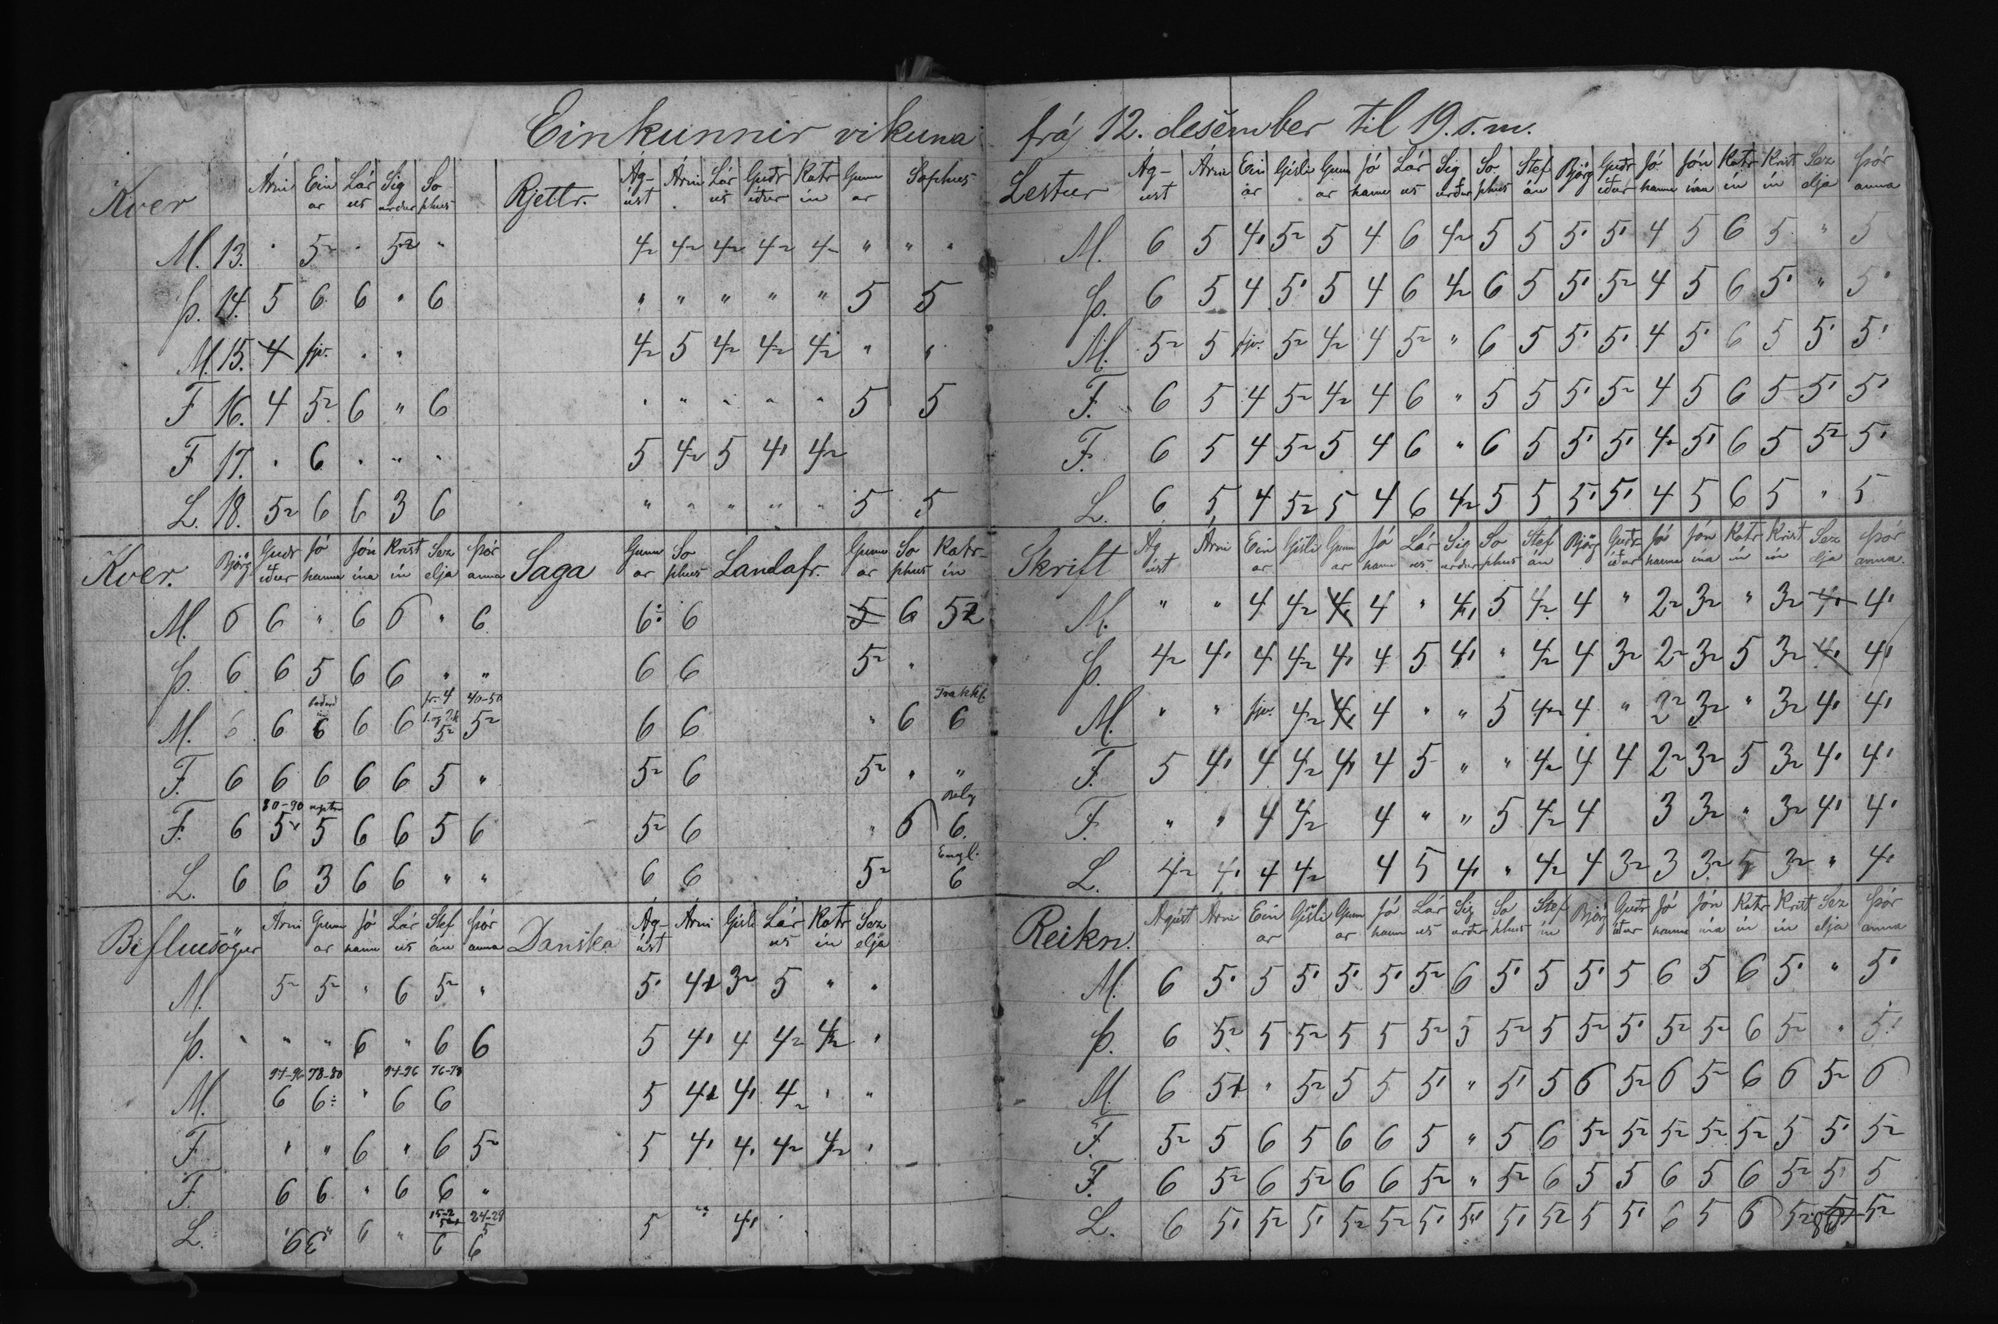 Einkunnir vikuna frá 12. desember til 19. s.m.
Kver Árni Einar Lárus Sigurður Sophus Rjettr. Ágúst Árni Lárus Guðríður Katrín Gunnar Sophus
M. 13. " 5~ " 5~ " 4~ 4~ 4~ 4~ 4~ " " "
Þ. 14. 5 6 6 " 6 " " " " " 5 5
M. 15. 4 fjv. " " 4~ 5 4~ 4~ 4~ " "
F 16. 4 5~ 6 " 6 " " " " " 5 5
F 17. " 6 " " " 5 4~ 5 4' 4~
L. 18. 5~ 6 6 3 6 " " " " " 5 5
Kver. Björg Guðríður Jóhanna Jónína Kristín Sezelja Þóranna Saga Gunnar Sophus Landafr. Gunnar Sophus Katrín
M. 6 6 " 6 6 " 6 6÷ 6 5 6 5~
Þ. 6 6 5 6 6 " " 6 6 5~ "
M. 6 6 6 6 6 5~ 40-50 5~ 6 6 " 6 6
F. 6 6 6 6 6 5 " 5~ 6 5~ " "
F. 6 80-90 5~ 5 6 6 5 6 5~ 6 " 6 6
L. 6 6 3 6 6 " " 6 6 5~ Engl. 6
Biflíusögur Árni Gunnar Jóhanna Lárus Stefán Þóranna Danska Ágúst Árni Gísli Lárus Katrín Sezelja
M. 5~ 5~ " 6 5~ " 5' 4' 3~ 5 " "
Þ. " " " 6 " 6 6 5 4' 4 4~ 4~ "
M. 94-96 6 78-80 6÷ " 94-96 6 76-78 6 5 4' 4' 4~ " "
F. " " 6 " 6 5~ 5 4' 4' 4~ 4~ "
F. 6 6 " 6 6 "
L. 6 " 6 24-29 5 6 5 " 4'
Lestur Ágúst Árni Einar Gísli Gunnar Jóhann Lárus Sigurður Sophus Stefán Björg Guðríður Jóhanna Jónína Katrín Kristín Sezelja Þóranna
M. 6 5 4' 5~ 5 4 6 4~ 5 5 5' 5' 4 5 6 5 " 5
Þ. 6 5 4 5' 5 4 6 4~ 6 5 5' 5~ 4 5 6 5' " 5'
M. 5~ 5 fjv. 5~ 4~ 4 5~ " 6 5 5' 5' 4 5' 6 5 5' 5'
F. 6 5 4 5~ 4~ 4 6 " 5 5 5' 5~ 4 5 6 5 5' 5'
F. 6 5 4 5~ 5 4 6 " 6 5 5' 5' 4~ 5' 6 5 5~ 5'
L. 6 5 4 5~ 5 4 6 4~ 5 5 5' 5' 4 5 6 5 " 5
Skrift Ágúst Árni Einar Gísli Gunnar Jóhann Lárus Sigurður Sophus Stefán Björg Guðríður Jóhanna Jónína Katrín Kristín Sezelja Þóranna.
M. " " 4 4~ 4 4 " 4' 5 4~ 4 " 2~ 3~ " 3~ 4' 4'
Þ. 4~ 4' 4 4~ 4' 4 5 4' " 4~ 4 3~ 2~ 3~ 5 3~ 4' 4'
M. " " fjv. 4~ 4 4 " " 5 4~ 4 " 2~ 3~ " 3~ 4' 4'
F. 5 4' 4 4~ 4' 4 5 " " 4~ 4 4 2~ 3~ 5 3~ 4' 4'
F. " " 4 4~ 4 " " 5 4~ 4 3 3~ " 3~ 4' 4'
L. 4~ 4' 4 4~ 4 5 4' " 4~ 4 3~ 3 3~ 5 3~ " 4'
Reikn. Ágúst Árni Einar Gísli Gunnar Jóhann Lárus Sigurður Sophus Stefán Björg Guðríður Jóhanna Jónína Katrín Kristín Sezelja Þóranna
M. 6 5' 5 5' 5' 5' 5~ 6 5' 5 5' 5 6 5 6 5' " 5'
Þ. 6 5~ 5 5~ 5 5 5~ 5 5~ 5 5~ 5' 5~ 5~ 6 5~ " 5'
M. 6 5' " 5~ 5 5 5' " 5' 5 6 5~ 6 5~ 6 6 5~ 6
F. 5~ 5 6 5 6 6 5 " 5 6 5~ 5~ 5~ 5~ 5~ 5 5' 5~
F. 6 5~ 6 5~ 6 6 5~ " 5~ 6 5 5 6 5 6 5~ 5' 5
L. 6 5' 5~ 5' 5~ 5~ 5' 5' 5' 5~ 5 5' 6 5 6 5~ 5~